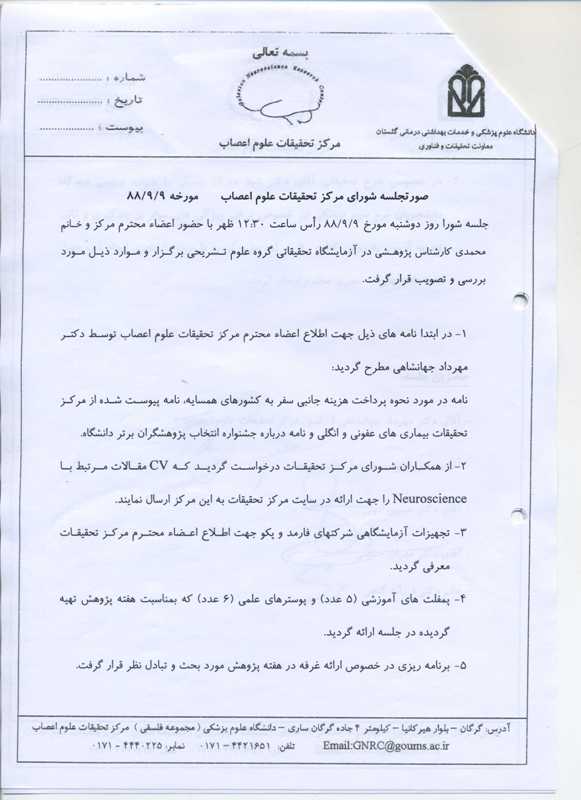 بسمه تعالی
Golestan Neuroscience Research Center
شماره : ......................
تاریخ : ......................
پیوست : ...................
دانشگاه علوم پزشکی و خدمات بهداشتی درمانی گلستان
معاونت تحقیقات و فناوری
مرکز تحقیقات علوم اعصاب
صورتجلسه شورای مرکز تحقیقات علوم اعصاب مورخه ۸۸/۹/۹
جلسه شورا روز دوشنبه مورخ ۸۸/۹/۹ رأس ساعت ۱۲:۳۰ ظهر با حضور اعضاء محترم مرکز و خانم
محمدی کارشناس پژوهشی در آزمایشگاه تحقیقاتی گروه علوم تشریحی برگزار و موارد ذیل مورد
بررسی و تصویب قرار گرفت.
۱- در ابتدا نامه های ذیل جهت اطلاع اعضاء محترم مرکز تحقیقات علوم اعصاب توسط دکتر
مهرداد جهانشاهی مطرح گردید:
نامه در مورد نحوه پرداخت هزینه جانبی سفر به کشورهای همسایه، نامه پیوست شده از مرکز
تحقیقات بیماری های عفونی و انگلی و نامه درباره جشنواره انتخاب پژوهشگران برتر دانشگاه.
۲- از همکاران شورای مرکز تحقیقات درخواست گردید که CV مقالات مرتبط با
Neuroscience را جهت ارائه در سایت مرکز تحقیقات به این مرکز ارسال نمایند.
۳- تجهیزات آزمایشگاهی شرکتهای فارمد و پکو جهت اطلاع اعضاء محترم مرکز تحقیقات
معرفی گردید.
۴- پمفلت های آموزشی (۵ عدد) و پوسترهای علمی (۶ عدد) که بمناسبت هفته پژوهش تهیه
گردیده در جلسه ارائه گردید.
۵- برنامه ریزی در خصوص ارائه غرفه در هفته پژوهش مورد بحث و تبادل نظر قرار گرفت.
آدرس: گرگان – بلوار هیرکانیا – کیلومتر ۴ جاده گرگان ساری – دانشگاه علوم پزشکی ( مجموعه فلسفی ) مرکز تحقیقات علوم اعصاب
Email:GNRC@goums.ac.ir تلفن: ۴۴۲۱۶۵۱ – ۰۱۷۱ نمابر: ۴۴۴۰۲۲۵ – ۰۱۷۱